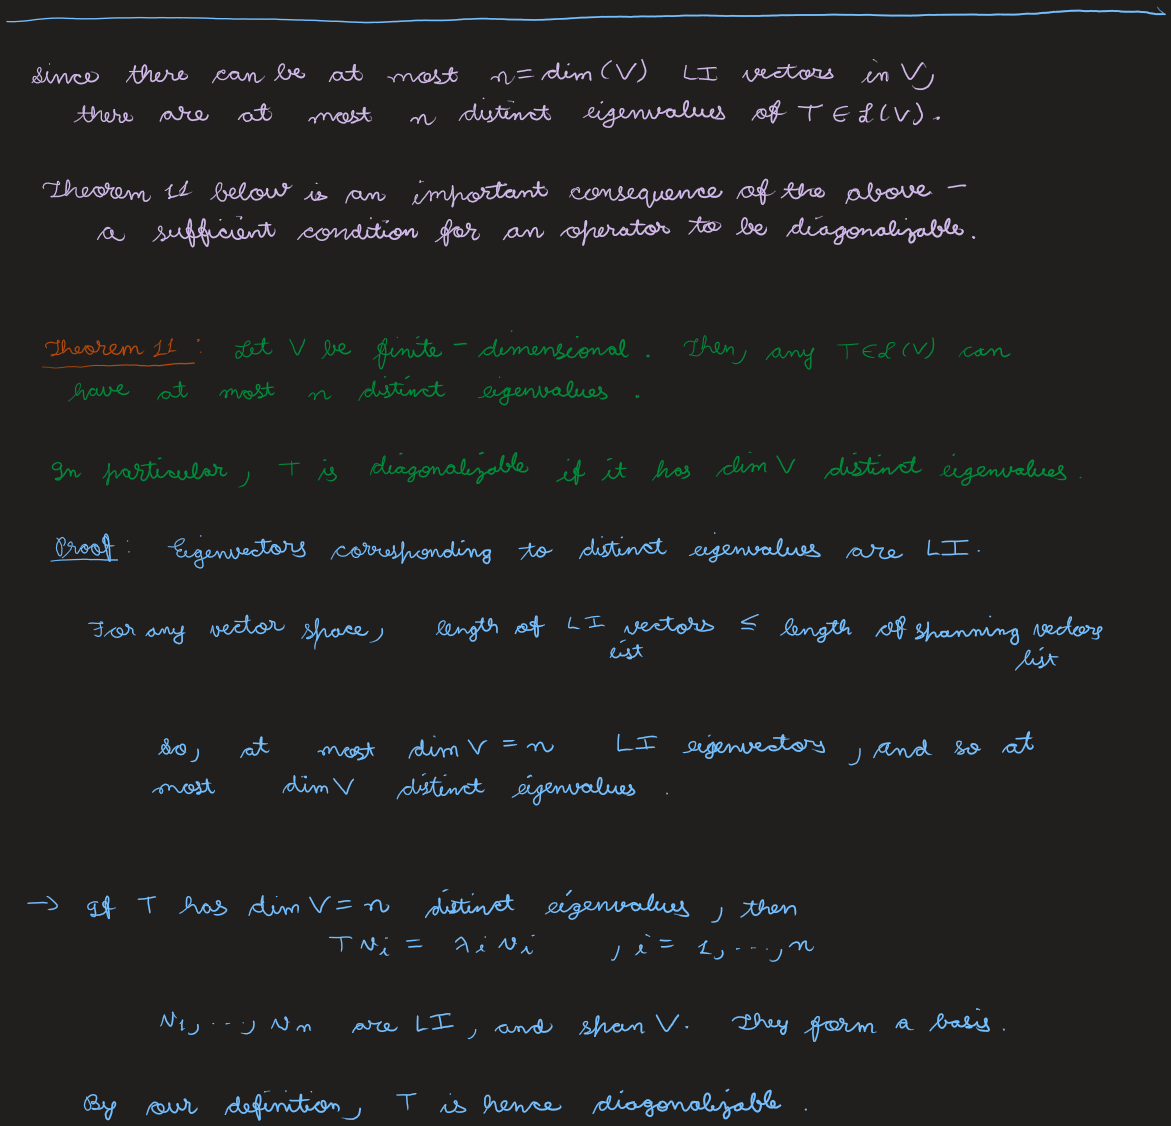 since there can be at most n = dim (V) LI vectors in V,
there are at most n distinct eigenvalues of T ∈ L(V).
Theorem 11 below is an important consequence of the above –
a sufficient condition for an operator to be diagonalizable.
Theorem 11: Let V be finite-dimensional. Then, any T∈L(V) can
have at most n distinct eigenvalues.
In particular, T is diagonalizable if it has dim V distinct eigenvalues.
Proof: Eigenvectors corresponding to distinct eigenvalues are LI.
For any vector space, length of LI vectors ≤ length of spanning vectors
list list
so, at most dim V = n LI eigenvectors, and so at
most dim V distinct eigenvalues.
→ If T has dim V = n distinct eigenvalues, then
T vᵢ = λᵢ vᵢ , i = 1, ..., n
v₁, ..., vₙ are LI, and span V. They form a basis.
By our definition, T is hence diagonalizable.